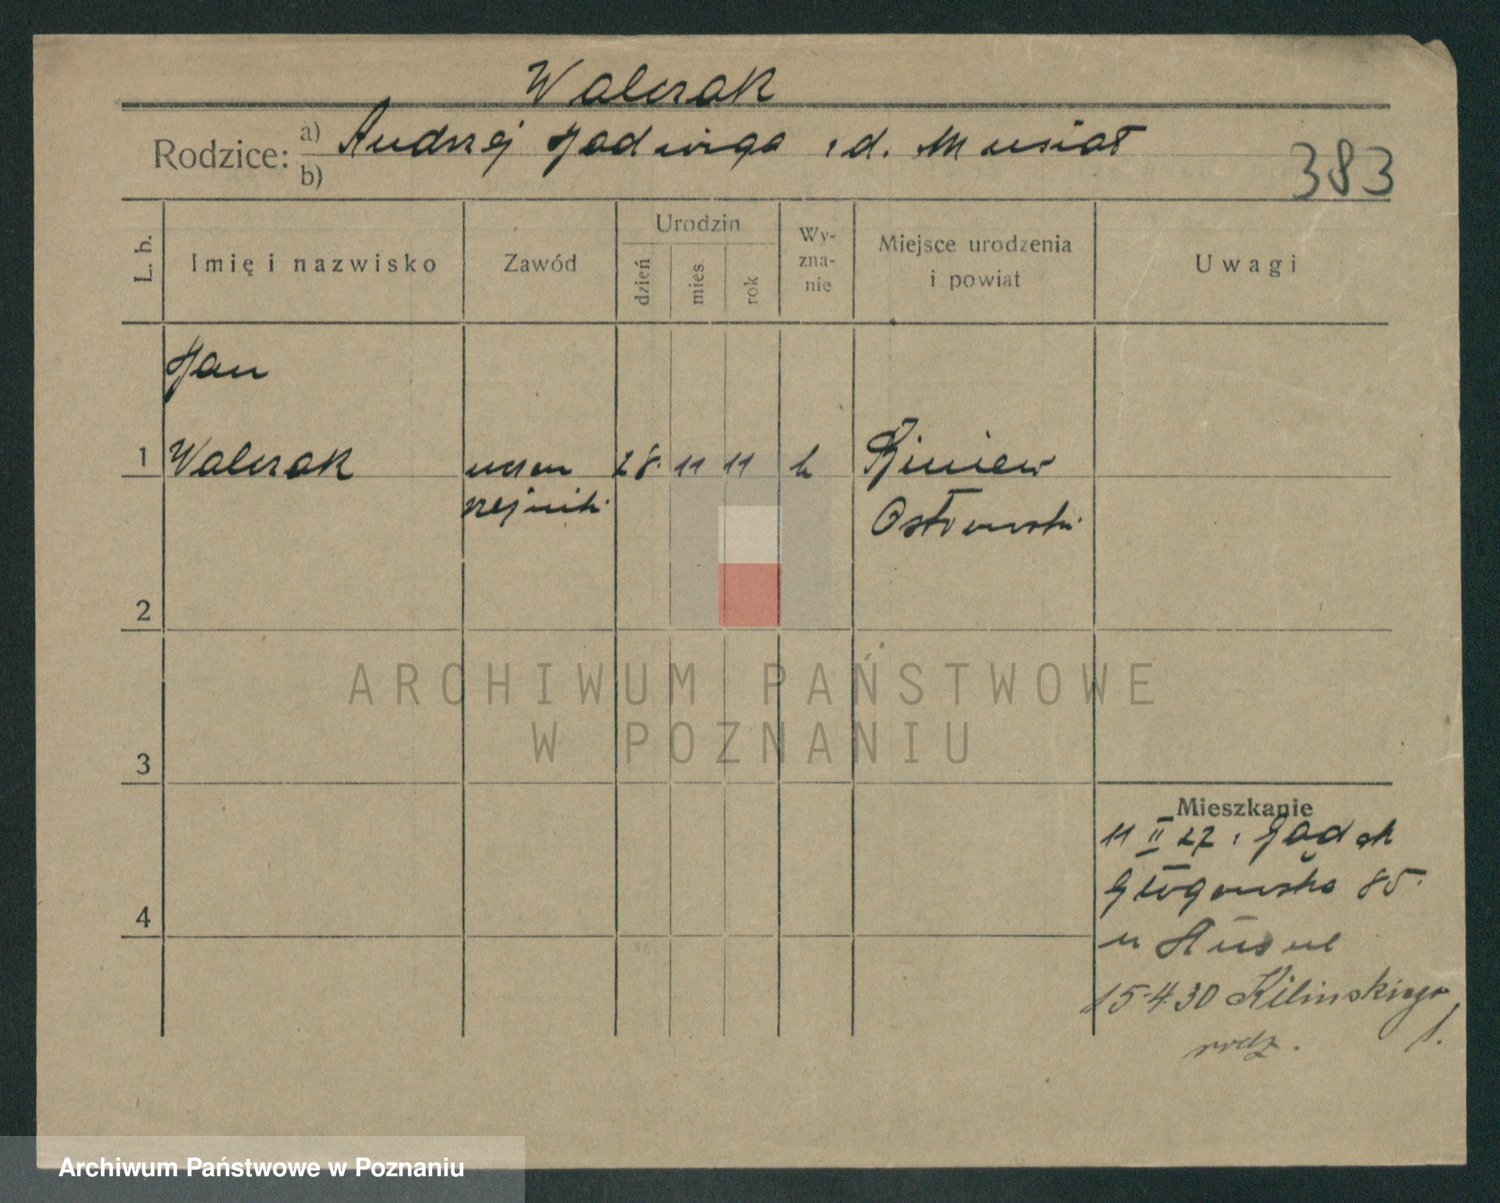 Walczak
Rodzice: a) Andrzej Jadwiga z d. Musiał
b)
383
L. b.
Imię i nazwisko
Zawód
Urodzin
dzień
mies.
rok
Wy-
zna-
nie
Miejsce urodzenia
i powiat
Uwagi
Jan
1 Walczak uczen 28. 11 11 k
rzeźnik.
Ostrowski
2
3
4
Mieszkanie
11 II 27
Głogowska 85.
15.4.30 Kilinskiego
1.
rodz.
ARCHIWUM PAŃSTWOWE
W POZNANIU
Archiwum Państwowe w Poznaniu